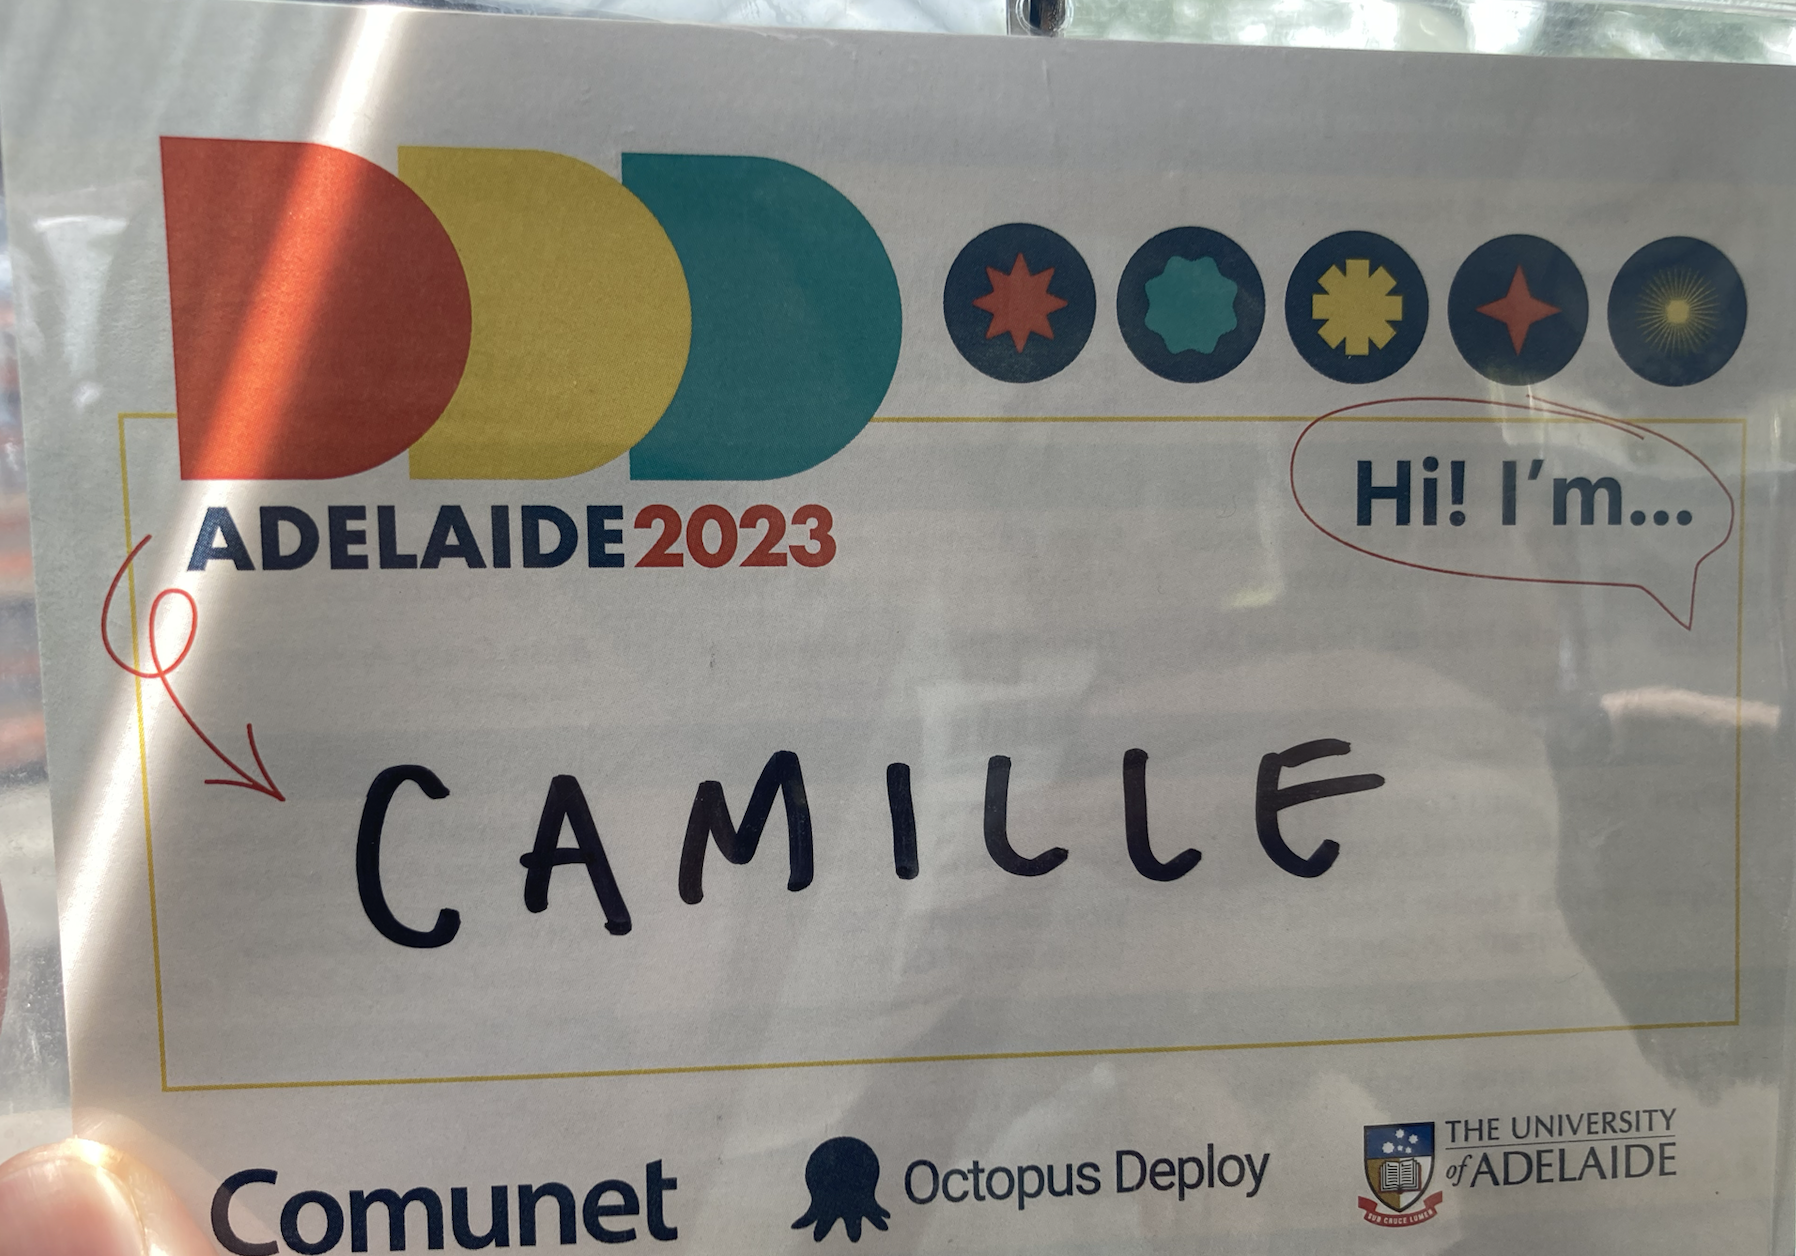 DDD
ADELAIDE2023
Hi! I'm...
CAMILLE
Comunet
Octopus Deploy
THE UNIVERSITY
of ADELAIDE
SUB CRUCE LUMEN